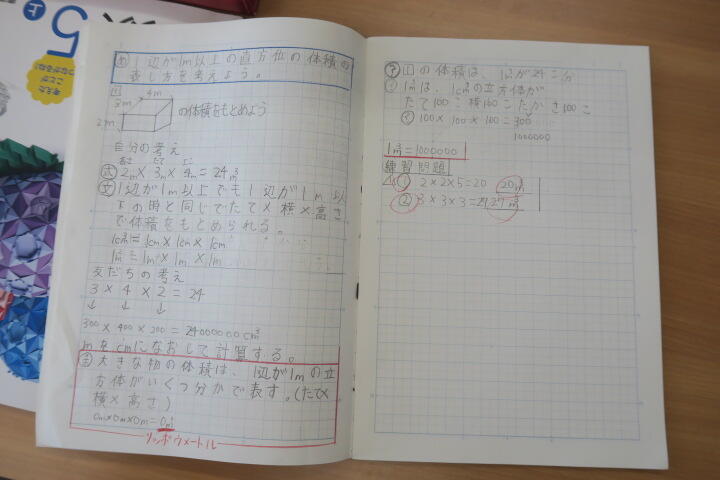 5
上
め 1辺が1m以上の直方体の体積の
表し方を考えよう。
問
4m
3m
2m
の体積をもとめよう
自分の考え
式 2m×3m×4m=24m³
文 1辺が1m以上でも1辺が1m以
下の時と同じでたて×横×高さ
で体積をもとめられる。
1cm³=1cm×1cm×1cm
1m³=1m×1m×1m
友だちの考え
3×4×2=24
↓ ↓ ↓
300×400×200=24000000cm³
mをcmになおして計算する。
大きな物の体積は、1辺が1mの立
方体がいくつ分かで表す。(たて×
横×高さ)
0m×0m×0m=0m³
リッポウメートル
の体積は、1m³が24こ分
1m³は、1cm³の立方体が
たて100こ横100こたかさ100こ
100×100×100=300
1000000
1m³=1000000
練習問題
① 2×2×5=20 20m³
② 3×3×3=27 27m³